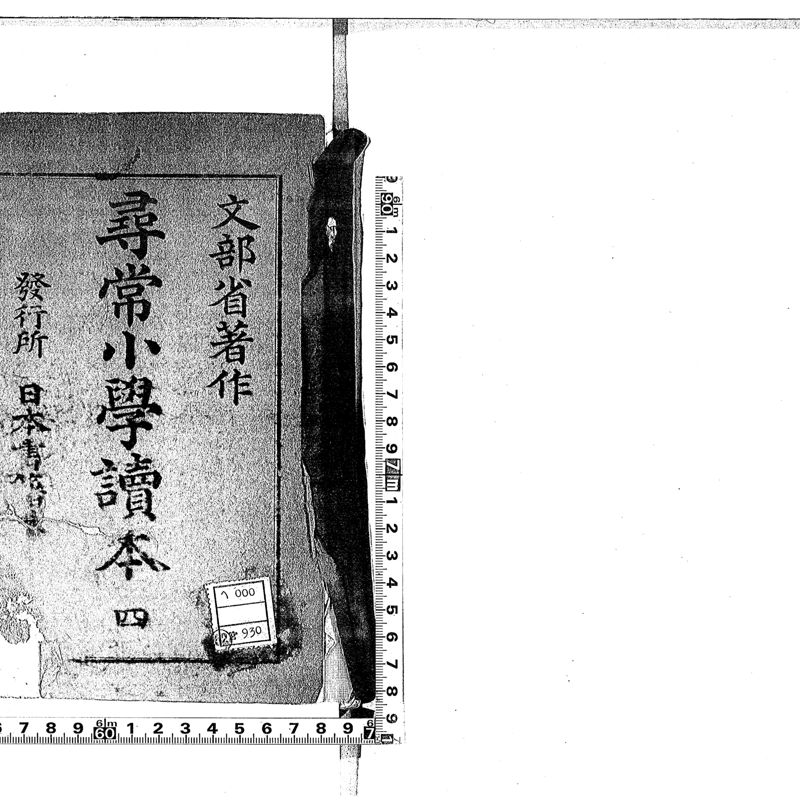 文部省著作
尋常小學讀本 四
發行所 日本書
へ 000
930
6m
90 1 2 3 4 5 6 7 8 9
7m
1 2 3 4 5 6 7 8 9
7 8 9
6m
60 1 2 3 4 5 6 7 8 9
6
7